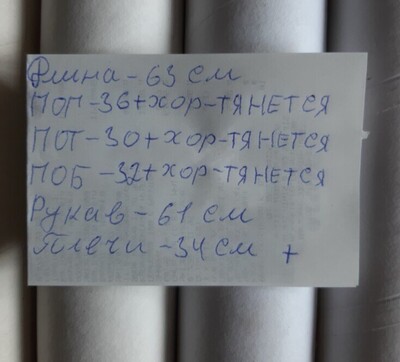 Длина - 63 см
ПОГ - 36 + хор - тянется
ПОТ - 30 + хор - тянется
ПОБ - 32 + хор - тянется
Рукав - 61 см
Плечи - 34 см +